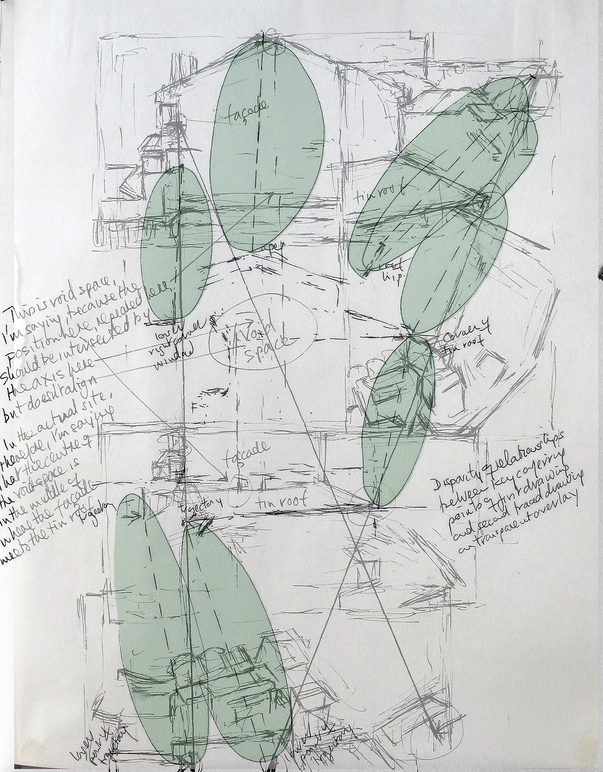 façade
tin roof
apex
This is void space.
I'm saying because the
position here, revealed here
should be intersected by
the axis here
but doesn't align
In the actual site,
therefore, I'm saying
that the centre of
the void space is
in the middle of
where the façade
meets the tin roof
right
window
Void
space
tin roof
façade
trajectory
tin roof
Disparity of relationships
between key
points of first drawing
and second traced drawing
on transparent overlay
trajectory